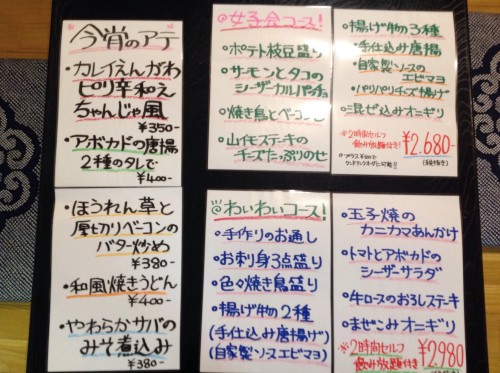 今宵のアテ
・カレイえんがわ
ピリ辛和え
ちゃんじゃ風
¥350-
・アボカドの唐揚
2種のタレで
¥400-
・ほうれん草と
厚切りベーコンの
バター炒め
¥380-
・和風焼きうどん
¥400-
・やわらかサバの
みそ煮込み
¥380-
女子会コース!
・ポテト枝豆盛り
・サーモンとタコの
シーザーカルパッチョ
・焼き鳥とベーコン串
・山イモステーキの
チーズたっぷりのせ
・揚げ物3種
・手仕込み唐揚
・自家製ソースの
エビマヨ
・パリパリチーズ揚げ
・混ぜ込みオニギリ
※2時間セルフ
飲み放題付き!
¥2.680-
(税抜き)
わいわいコース!
・手作りのお通し
・お刺身3点盛り
・色々焼き鳥盛り
・揚げ物2種
(手仕込み唐揚げ)
(自家製ソースエビマヨ)
・玉子焼の
カニカマあんかけ
・トマトとアボカドの
シーザーサラダ
・牛ロスのおろしステーキ
・まぜこみオニギリ
※2時間セルフ
飲み放題付き
¥2980